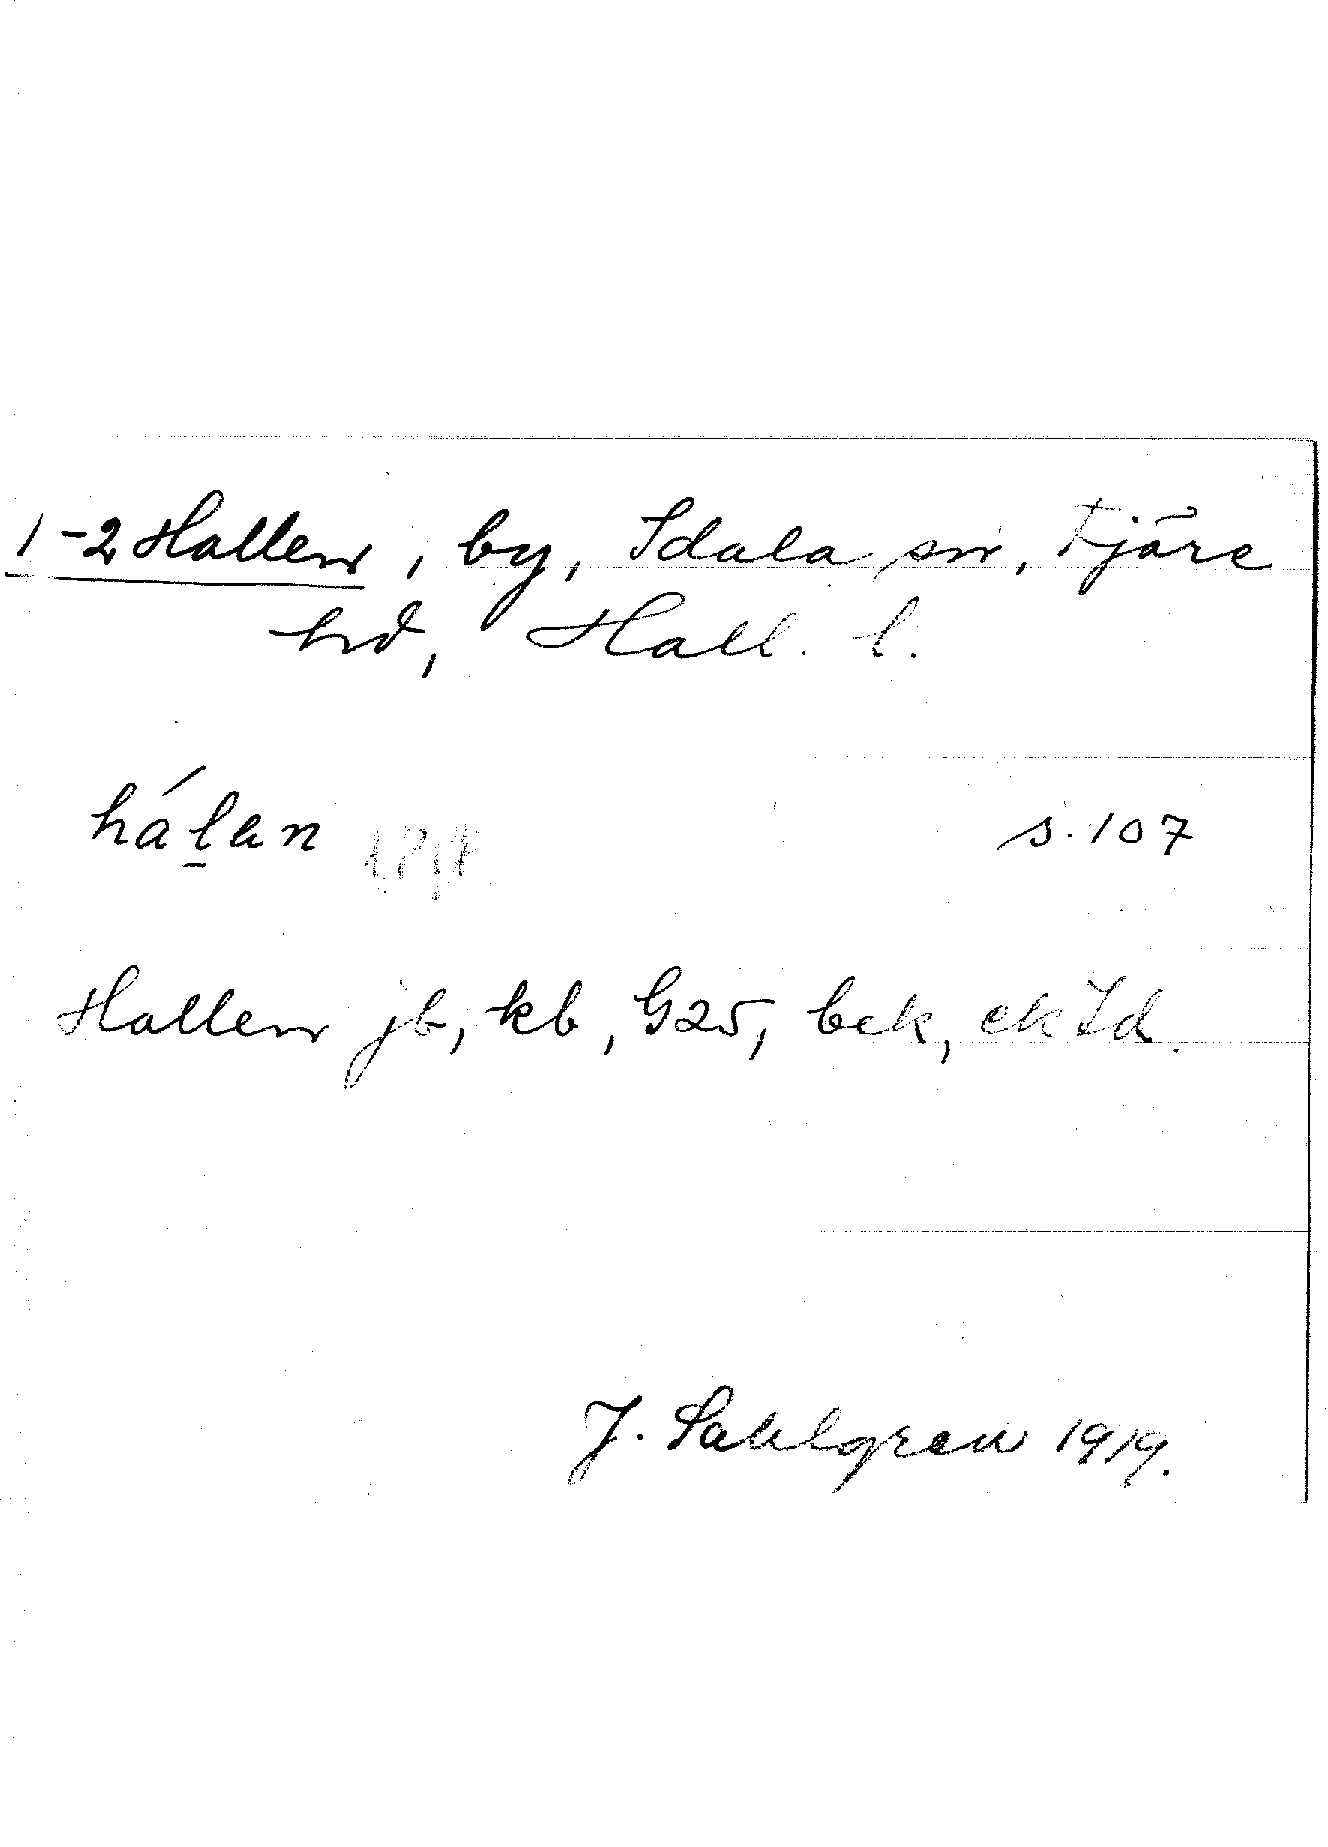 1-2 Hallen, by, Idala sn, Fjäre
hd, Hall. l.
hál̲an s. 107
Hallen jb, kb, G25, bek, ekId.
J. Sahlgren 1919.